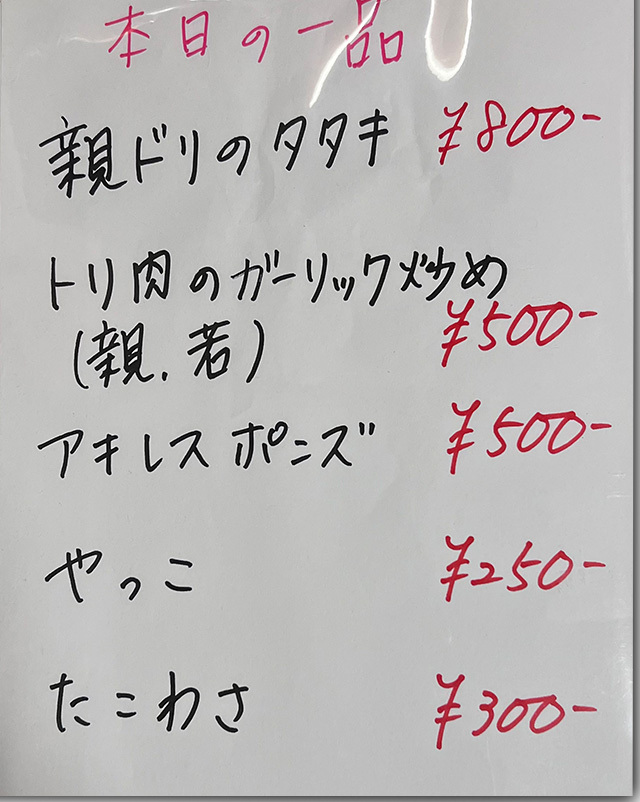 本日の一品
親ドリのタタキ ¥800-
トリ肉のガーリック炒め
(親.若) ¥500-
アキレスポンズ ¥500-
やっこ ¥250-
たこわさ ¥300-